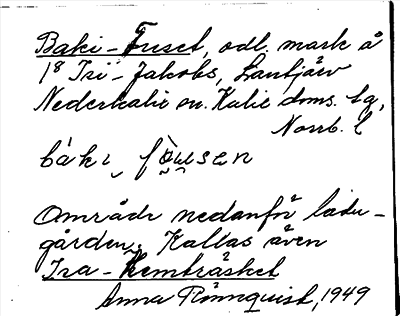 Baki-Fuset, odl. mark å
1⁸ Isi-Jakobs, Lantjärv
Nederkalix sn. Kalix doms. tg,
Norrb. l
bàki fòusen
Område nedanför ladu-
gården. Kallas även
Isa-Hemträsket
Anna Rönnquist, 1949